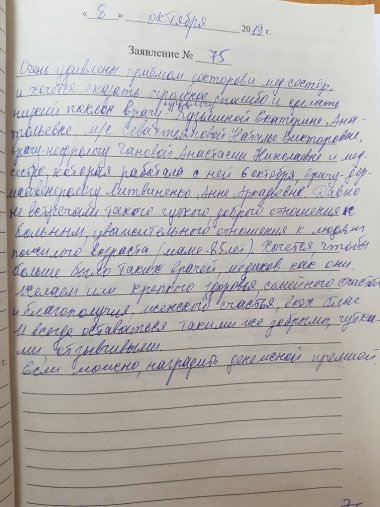 « 8 » октября 2019 г.
Заявление № 75
Очень удивлены приемом докторов и медсестер,
и хочется сказать огромное спасибо и сделать
низкий поклон врачу хирургу Екатерине Ана-
тольевне, м/с Севастьяновой Наталье Викторовне,
врачу-нефрологу Гановой Анастасии Николаевне и мед.
сестре, которая работала с ней 6 октября, врачу-дер-
матовенерологу Литвиненко Анне Аркадьевне. Давно
не встречали такого чуткого доброго отношения к
больным, уважительного отношения к людям
пожилого возраста (маме-85 лет) Хочется чтобы
больше было таких врачей, медиков как они.
Желаем им крепкого здоровья семейного счастья
и благополучия, женского счастья, всех благ
И всегда оставаться такими же добрыми, чутки-
ми отзывчивыми
Если можно, наградить денежной премией